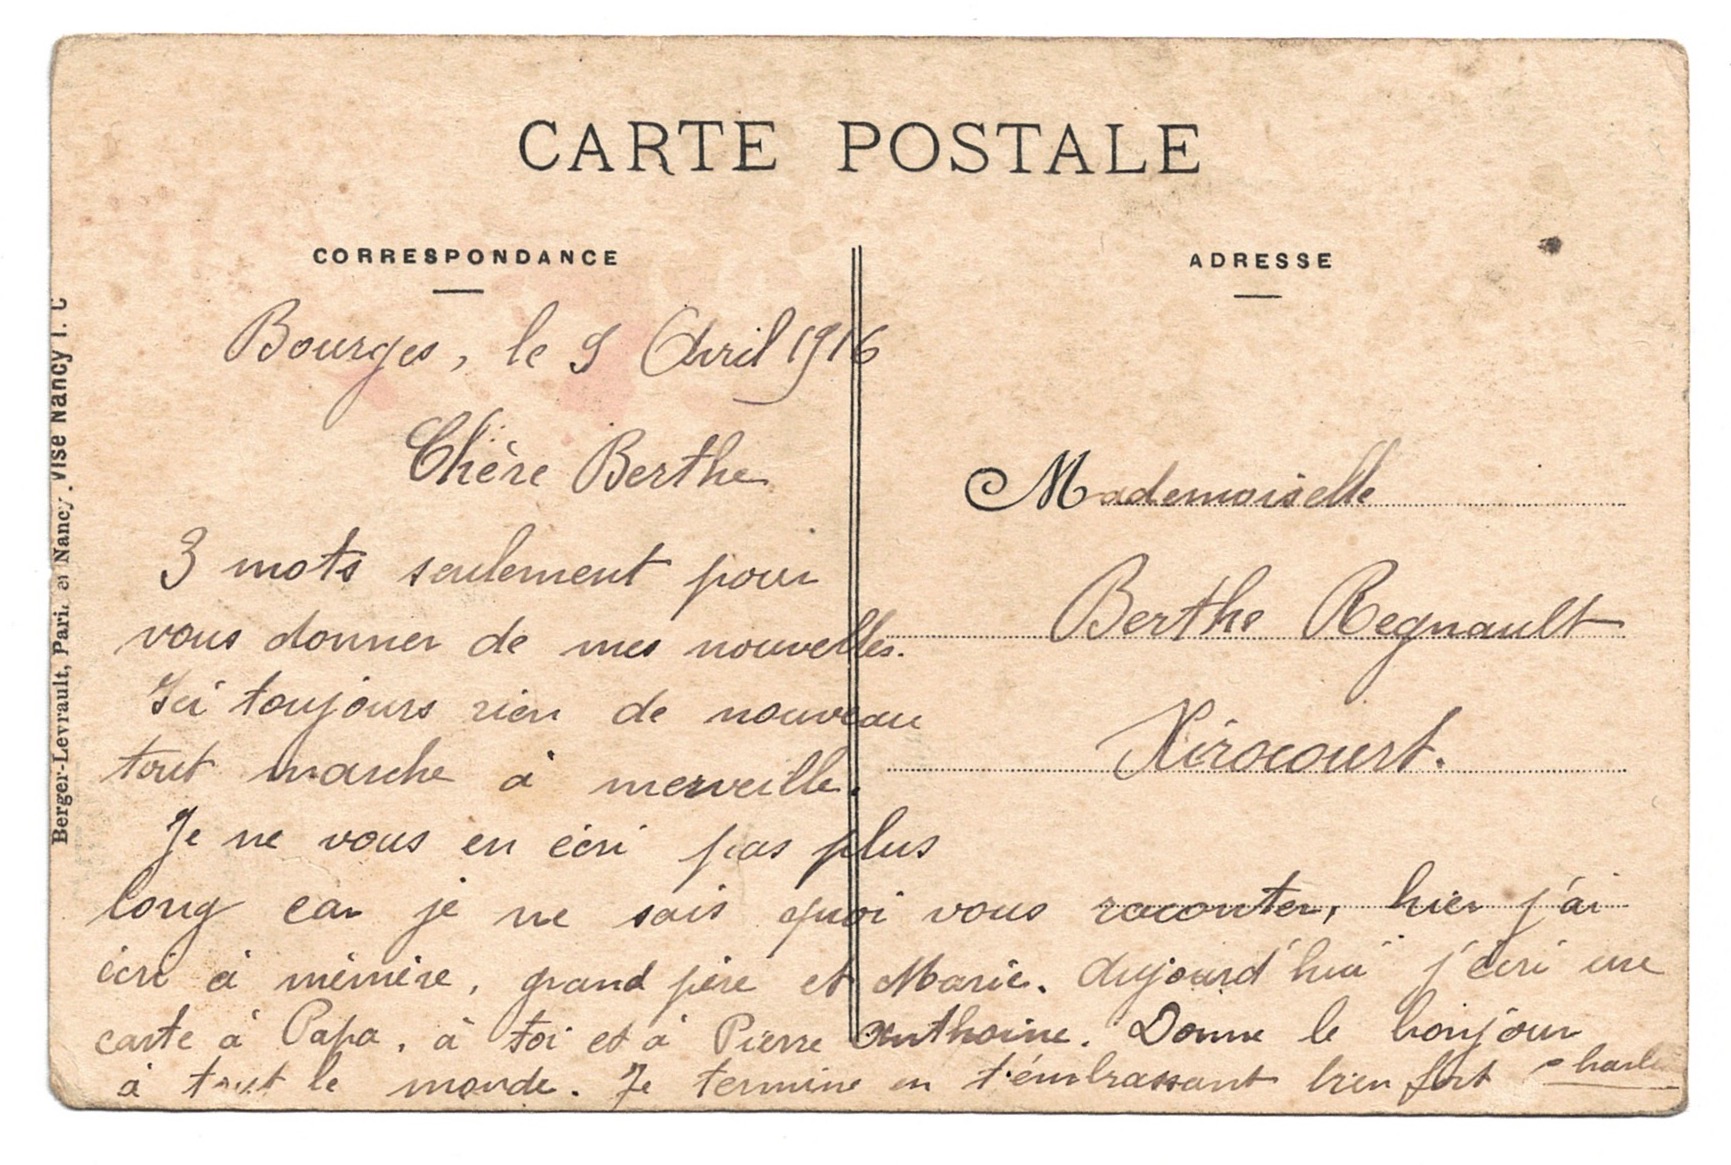 CARTE POSTALE
CORRESPONDANCE
ADRESSE
Bourges, le 9 Avril 1916
Chère Berthe
3 mots seulement pour
vous donner de mes nouvelles.
Ici toujours rien de nouveau
tout marche à merveille.
Je ne vous en écri pas plus
long car je ne sais quoi vous raconter, hier j'ai
écri à mémère, grand père et Marie. Aujourd'hui j'écri une
carte à Papa, à toi et à Pierre Anthoine. Donne le bonjour
à tout le monde. Je termine en t'embrassant bien fort
Mademoiselle
Berthe Regnault
Xirocourt.
Berger-Levrault, Paris et Nancy. Visé Nancy